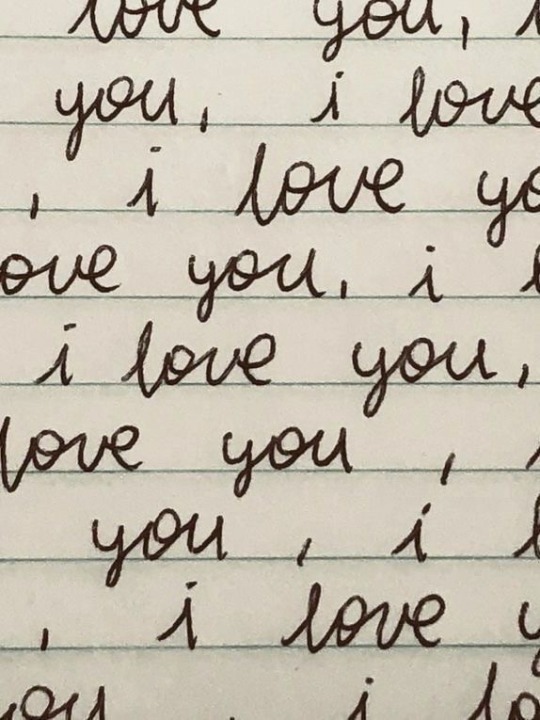 love you,
you, i love
, i love yo
ove you, i
i love you,
love you ,
you , i
, i love y
you , i lo